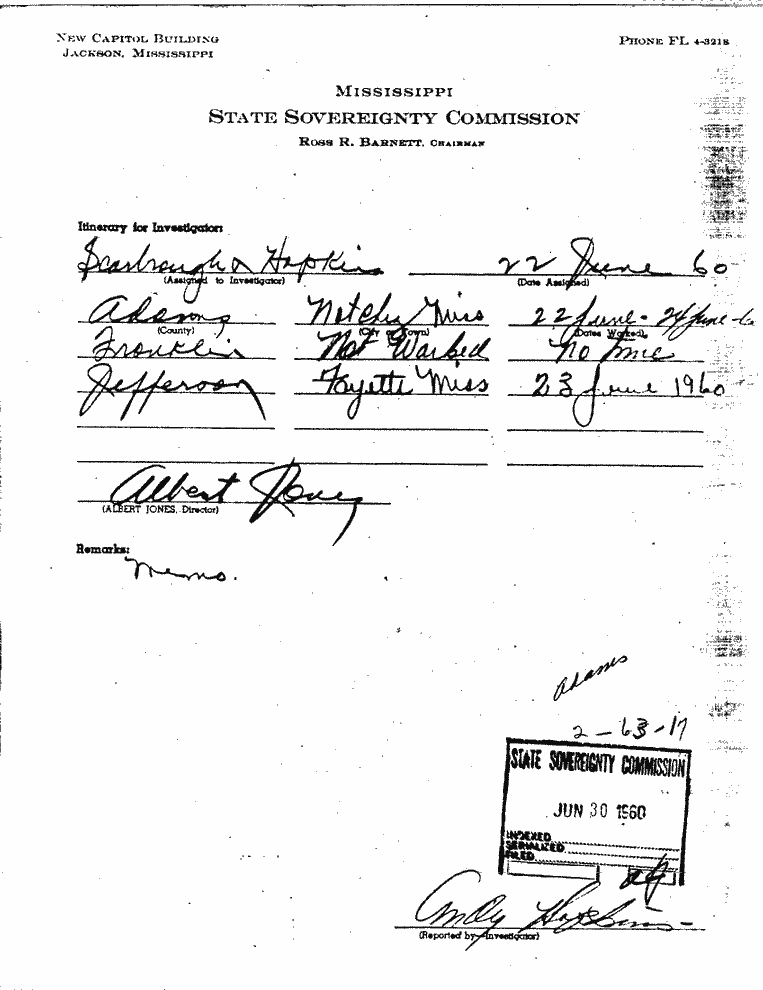 NEW CAPITOL BUILDING
JACKSON, MISSISSIPPI
PHONE FL 4-3218
MISSISSIPPI
STATE SOVEREIGNTY COMMISSION
ROSS R. BARNETT, CHAIRMAN
Itinerary for Investigator:
Scarbrough & Hopkins 22 June 60
(Assigned to Investigator) (Date Assigned)
Adams Natchez Miss 22 June - 24 June-6
(County) (City or Town) (Dates Worked)
Franklin Not Worked No time
Jefferson Fayette Miss 23 June 1960
Albert Jones
(ALBERT JONES, Director)
Remarks:
Memo.
Adams
2-63-17
STATE SOVEREIGNTY COMMISSION
JUN 30 1960
INDEXED
SERIALIZED
FILED
Andy Hopkins
(Reported by—Investigator)